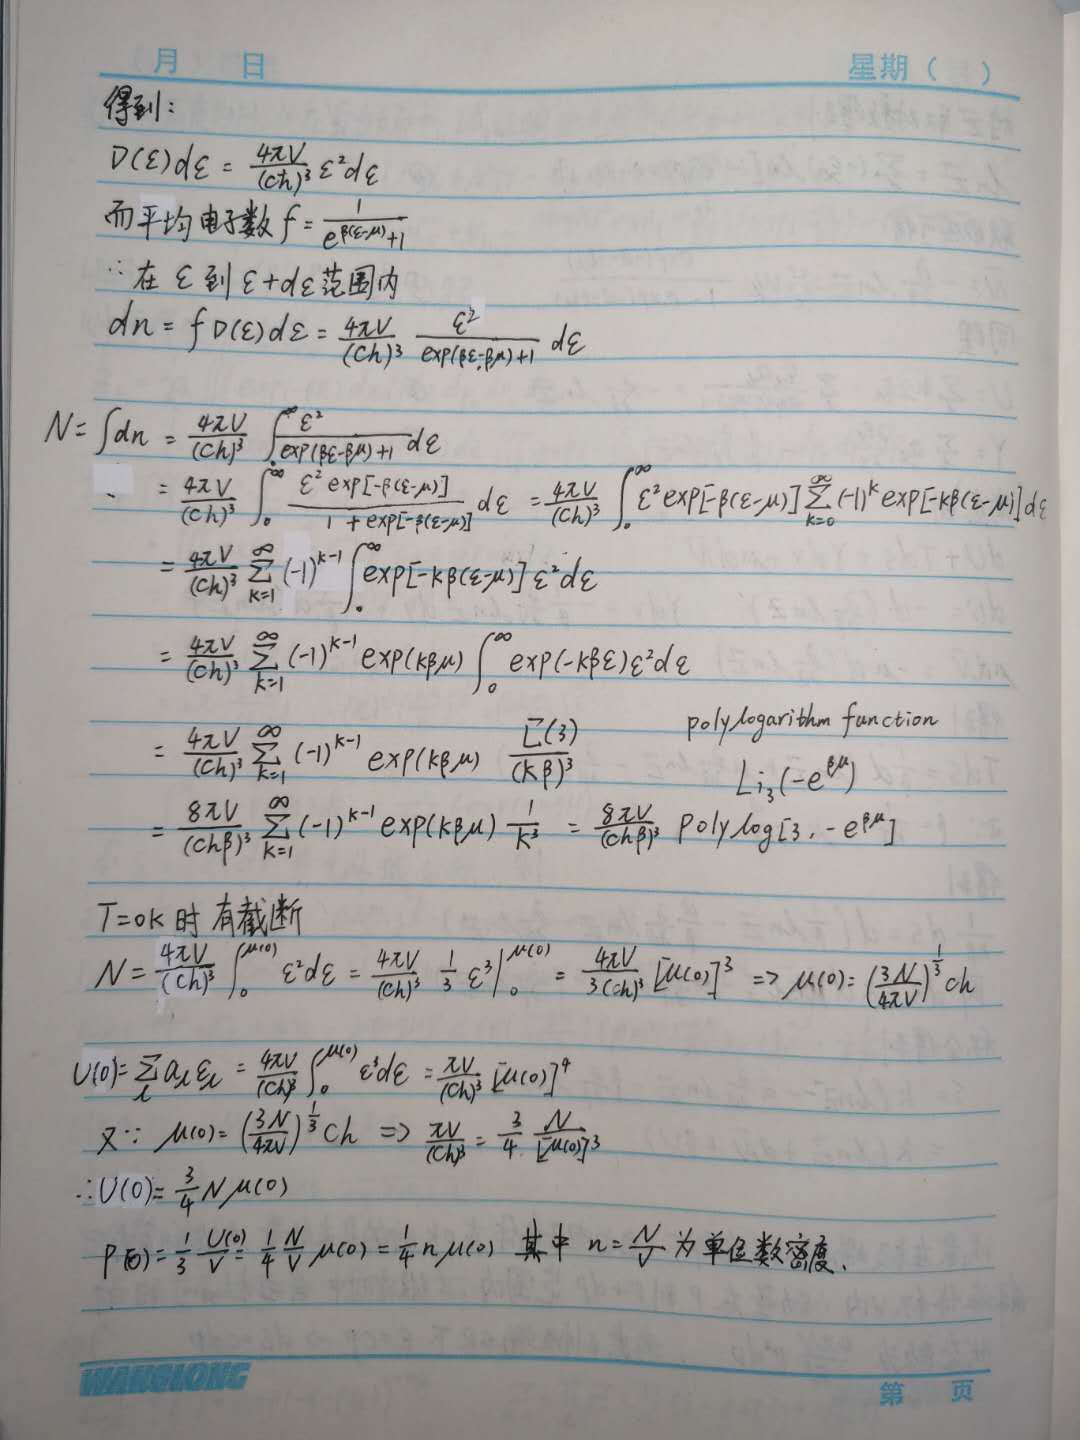 月 日 星期 ( )
得到:
D(ε)dε = \frac{4πV}{(cħ)^3} ε^2 dε
而平均电子数 f = \frac{1}{e^{β(ε-μ)}+1}
∴ 在 ε 到 ε+dε 范围内
dn = f D(ε)dε = \frac{4πV}{(ch)^3} \frac{ε^2}{exp(βε-βμ)+1} dε
N = ∫dn = \frac{4πV}{(ch)^3} ∫_0^∞ \frac{ε^2}{exp(βε-βμ)+1} dε
= \frac{4πV}{(ch)^3} ∫_0^∞ \frac{ε^2 exp[-β(ε-μ)]}{1+exp[-β(ε-μ)]} dε = \frac{4πV}{(ch)^3} ∫_0^∞ ε^2 exp[-β(ε-μ)] ∑_{k=0}^∞ (-1)^k exp[-kβ(ε-μ)] dε
= \frac{4πV}{(ch)^3} ∑_{k=1}^∞ (-1)^{k-1} ∫_0^∞ exp[-kβ(ε-μ)] ε^2 dε
= \frac{4πV}{(ch)^3} ∑_{k=1}^∞ (-1)^{k-1} exp(kβμ) ∫_0^∞ exp(-kβε) ε^2 dε
polylogarithm function
= \frac{4πV}{(ch)^3} ∑_{k=1}^∞ (-1)^{k-1} exp(kβμ) \frac{Γ(3)}{(kβ)^3}
Li_3(-e^{βμ})
= \frac{8πV}{(chβ)^3} ∑_{k=1}^∞ (-1)^{k-1} exp(kβμ) \frac{1}{k^3} = \frac{8πV}{(chβ)^3} polylog[3, -e^{βμ}]
T=0K 时 有截断
N = \frac{4πV}{(ch)^3} ∫_0^{μ(0)} ε^2 dε = \frac{4πV}{(ch)^3} \frac{1}{3} ε^3 |_0^{μ(0)} = \frac{4πV}{3(ch)^3} [μ(0)]^3 => μ(0) = (\frac{3N}{4πV})^{\frac{1}{3}} ch
U(0) = ∑_l a_l ε_l = \frac{4πV}{(ch)^3} ∫_0^{μ(0)} ε^3 dε = \frac{πV}{(ch)^3} [μ(0)]^4
又∵ μ(0) = (\frac{3N}{4πV})^{\frac{1}{3}} ch => \frac{πV}{(ch)^3} = \frac{3}{4} \frac{N}{[μ(0)]^3}
∴ U(0) = \frac{3}{4} N μ(0)
P(0) = \frac{1}{3} \frac{U(0)}{V} = \frac{1}{4} \frac{N}{V} μ(0) = \frac{1}{4} n μ(0) 其中 n = \frac{N}{V} 为单位数密度.
WANGLONG
第 页